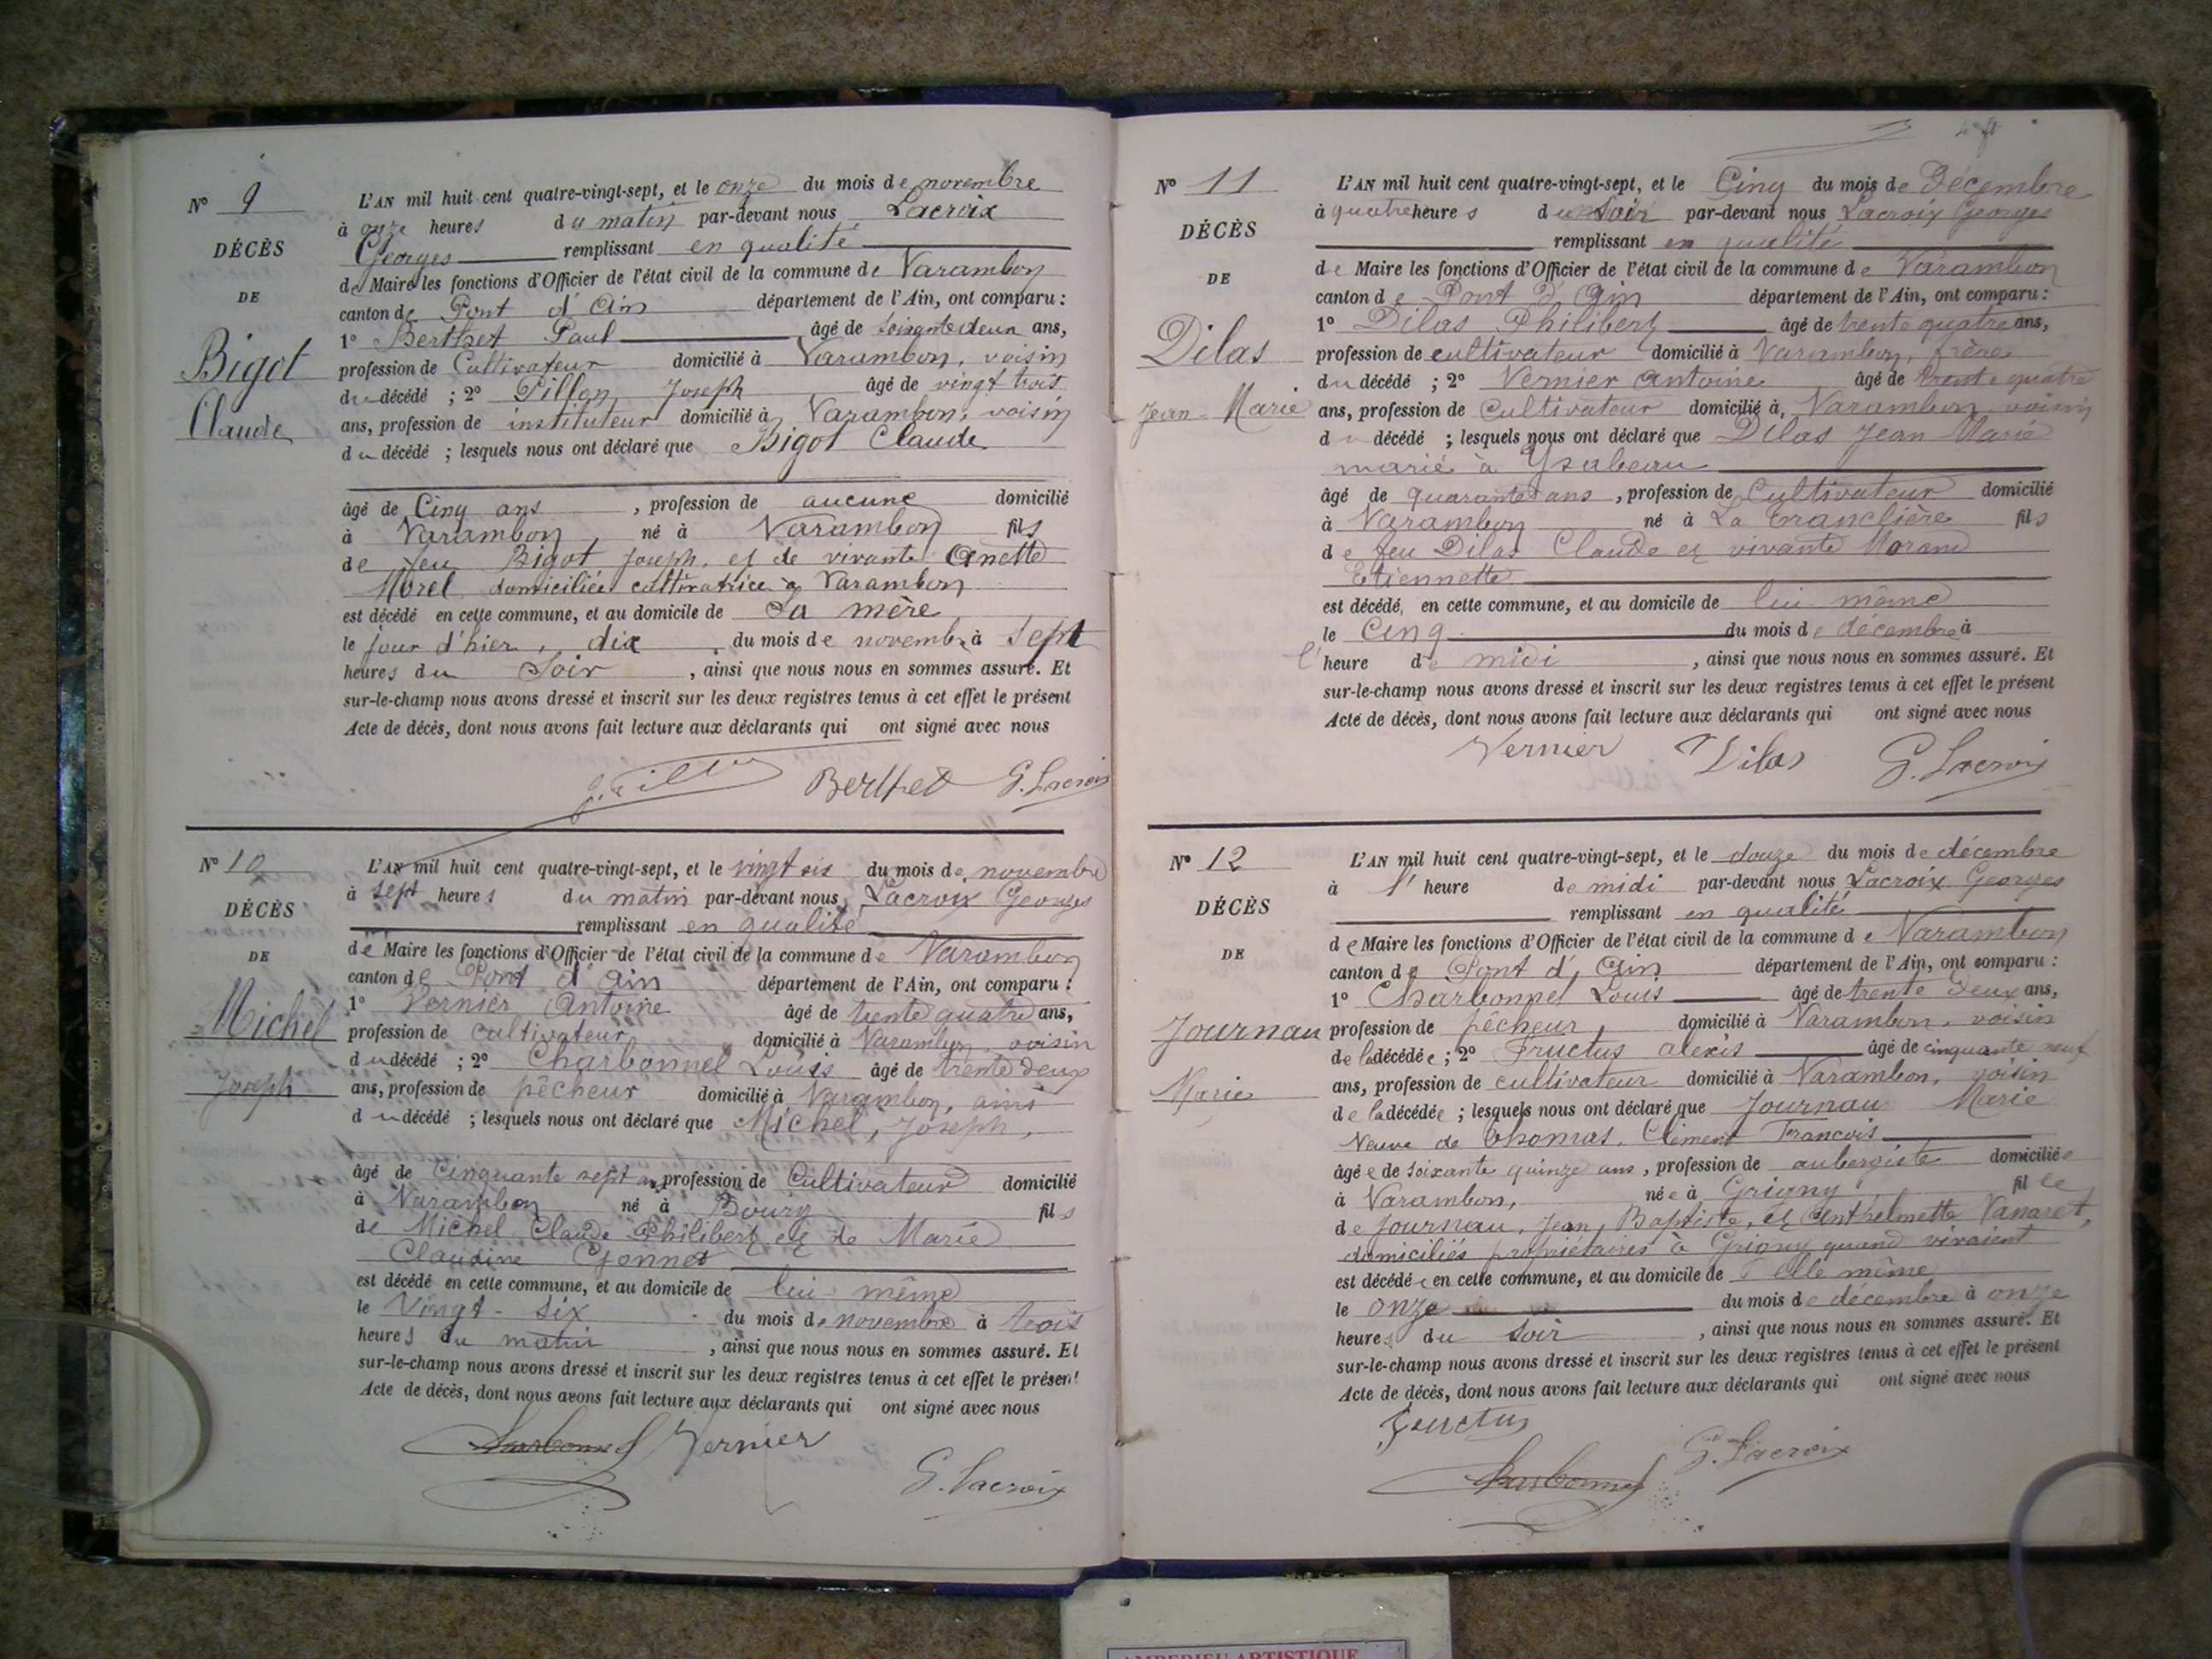 N° 9
DÉCÈS
DE
Bigot
Claude
L'AN mil huit cent quatre-vingt-sept, et le onze du mois de novembre
à onze heures du matin par-devant nous Lacroix
Georges remplissant en qualité
de Maire les fonctions d'Officier de l'état civil de la commune de Varambon
canton de Pont d'Ain département de l'Ain, ont comparu :
1° Berthet Paul âgé de soixante deux ans,
profession de Cultivateur domicilié à Varambon, voisin
du décédé ; 2° Pillon Joseph âgé de vingt trois
ans, profession de instituteur domicilié à Varambon, voisin
du décédé ; lesquels nous ont déclaré que Bigot Claude
âgé de Cinq ans , profession de aucune domicilié
à Varambon, né à Varambon fils
de feu Bigot Joseph, et de vivante Anette
Morel domiciliée cultivatrice à Varambon
est décédé en cette commune, et au domicile de sa mère
le jour d'hier, dix du mois de novembre à sept
heures du soir , ainsi que nous nous en sommes assuré. Et
sur-le-champ nous avons dressé et inscrit sur les deux registres tenus à cet effet le présent
Acte de décès, dont nous avons fait lecture aux déclarants qui ont signé avec nous
Berthet G. Lacroix
N° 10
DÉCÈS
DE
Michel
Joseph
L'AN mil huit cent quatre-vingt-sept, et le vingt six du mois de novembre
à sept heures du matin par-devant nous, Lacroix Georges
remplissant en qualité
de Maire les fonctions d'Officier de l'état civil de la commune de Varambon
canton de Pont d'Ain département de l'Ain, ont comparu :
1° Vernier Antoine âgé de trente quatre ans,
profession de cultivateur domicilié à Varambon, voisin
du décédé ; 2° Charbonnel Louis âgé de trente deux
ans, profession de pêcheur domicilié à Varambon, amis
du décédé ; lesquels nous ont déclaré que Michel, Joseph,
âgé de cinquante sept ans, profession de Cultivateur domicilié
à Varambon né à Bourg fils
de Michel Claude Philibert et de Marie
Claudine Gonnet
est décédé en cette commune, et au domicile de lui-même
le Vingt-six du mois de novembre à trois
heures du matin , ainsi que nous nous en sommes assuré. Et
sur-le-champ nous avons dressé et inscrit sur les deux registres tenus à cet effet le présent
Acte de décès, dont nous avons fait lecture aux déclarants qui ont signé avec nous
Charbonnel Vernier
G. Lacroix
N° 11
DÉCÈS
DE
Dilas
Jean-Marie
L'AN mil huit cent quatre-vingt-sept, et le Cinq du mois de Décembre
à quatre heures du soir par-devant nous Lacroix Georges
remplissant en qualité
de Maire les fonctions d'Officier de l'état civil de la commune de Varambon
canton de Pont d'Ain département de l'Ain, ont comparu :
1° Dilas Philibert âgé de trente quatre ans,
profession de cultivateur domicilié à Varambon, frère
du décédé ; 2° Vernier Antoine âgé de trente quatre
ans, profession de Cultivateur domicilié à, Varambon voisin
du décédé ; lesquels nous ont déclaré que Dilas Jean Marie
marié à Ysabeau
âgé de quarante ans , profession de Cultivateur domicilié
à Varambon né à La Tranclière fils
de feu Dilas Claude et vivante Morand
Etiennette
est décédé, en cette commune, et au domicile de lui-même
le Cinq du mois de décembre à
l'heure de midi , ainsi que nous nous en sommes assuré. Et
sur-le-champ nous avons dressé et inscrit sur les deux registres tenus à cet effet le présent
Acte de décès, dont nous avons fait lecture aux déclarants qui ont signé avec nous
Vernier Dilas G. Lacroix
N° 12
DÉCÈS
DE
Journau
Marie
L'AN mil huit cent quatre-vingt-sept, et le douze du mois de décembre
à l'heure de midi par-devant nous Lacroix Georges
remplissant en qualité
de Maire les fonctions d'Officier de l'état civil de la commune de Varambon
canton de Pont d'Ain département de l'Ain, ont comparu :
1° Charbonnel Louis âgé de trente deux ans,
profession de pêcheur, domicilié à Varambon, voisin
de la décédée ; 2° Fructus alexis âgé de cinquante neuf
ans, profession de cultivateur domicilié à Varambon, voisin
de la décédée ; lesquels nous ont déclaré que Journau Marie
Veuve de Thomas, Clément François
âgée de soixante quinze ans, profession de aubergiste domiciliée
à Varambon, née à Grigny fille
de Journau, Jean, Baptiste, et Anthelmette Vanaret,
domiciliés propriétaires à Grigny quand vivaient
est décédée en cette commune, et au domicile de elle même
le onze du mois de décembre à onze
heures du soir , ainsi que nous nous en sommes assuré. Et
sur-le-champ nous avons dressé et inscrit sur les deux registres tenus à cet effet le présent
Acte de décès, dont nous avons fait lecture aux déclarants qui ont signé avec nous
Fructus
Charbonnel G. Lacroix
AMBERIEU ARTISTIQUE